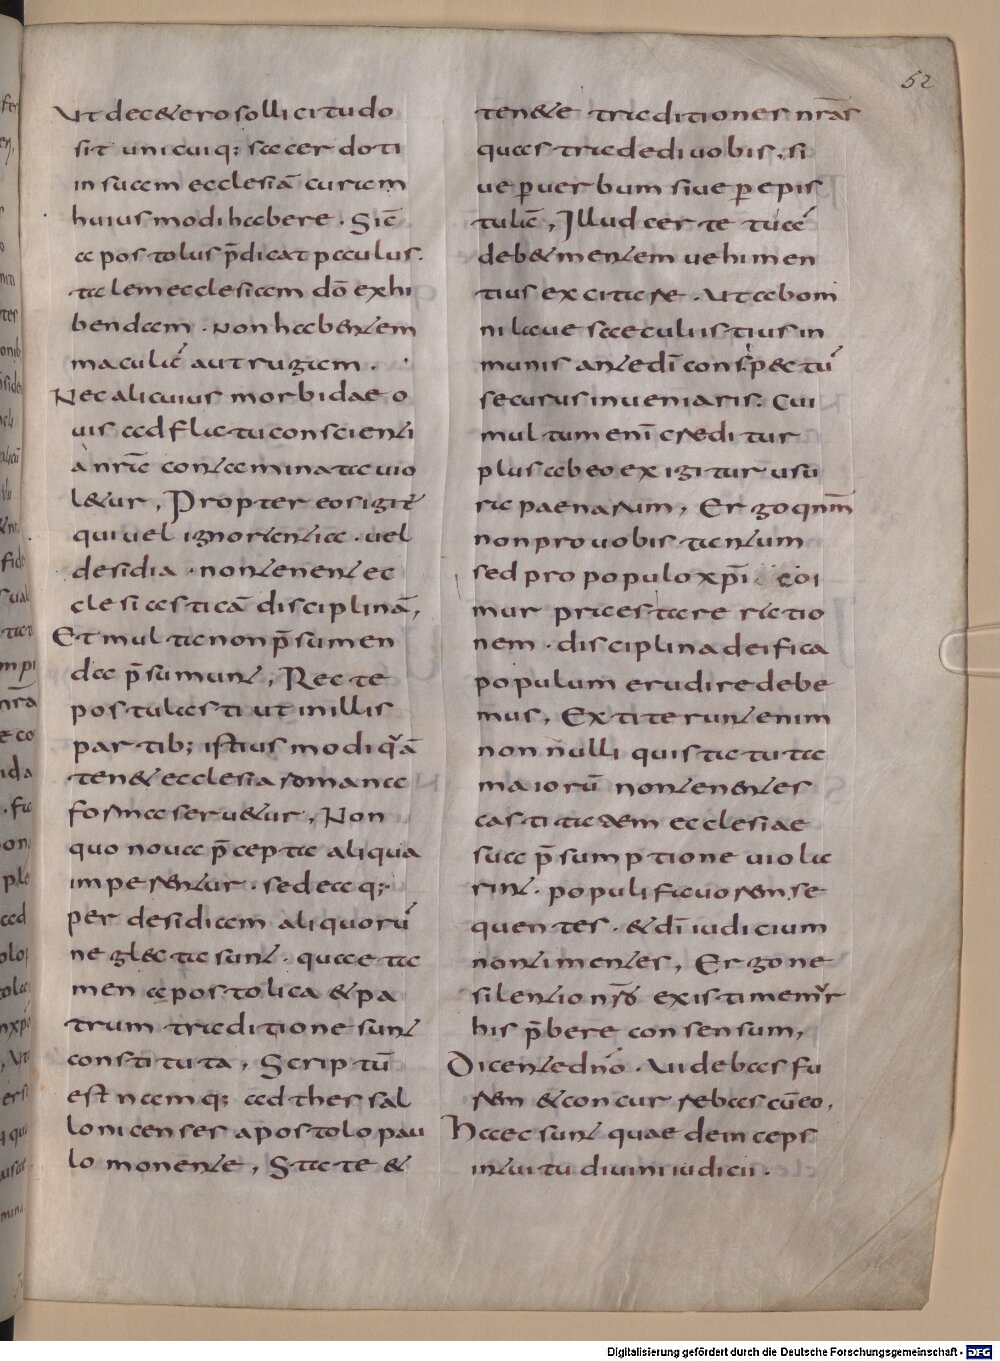 52
Ut dec&ero sollicitudo
sit unicuiq; sacerdoti
in suam ecclesiā curam
huiusmodi habere. Sic̄
apostolus p̄dicat paulus.
talem ecclesiam dō exhi
bendam. Non habentem
maculā aut rugam.
Nec alicuius morbidae o
uis adflatu conscienti
a nr̄a contaminata uio
l&ur, Propter eos igit̄
qui uel ignorantia. uel
desidia. non tenent ec
clesiasticā disciplinā,
Et multa non p̄sumen
da p̄sumunt, Recte
postulasti ut in illis
partib; istius modi quā
ten& ecclesia romana
forma seru&ur, Non
quo noua p̄cepta aliqua
imperentur. sed ea q;
per desidiam aliquorū
neglecta sunt. quae ta
men apostolica & pa
trum traditione sunt
constituta, Scriptū
est namq; ad thersal
lonicenses apostolo pau
lo monente, State &
ten&e traditiones nr̄as
quas tradedi uobis. si
ue p uerbum siue p epis
tulā, Illud certe tuā
deb& mentem uehimen
tius excitare. Ut ab om
ni laue saeculi istius in
munis ante dī conspectū
securus inueniaris. Cui
multum enī creditur
plus ab eo exigitur usu
ra paenarum, Ergo qnm̄
non pro uobis tantum
sed pro populo xp̄i coi
mur praestare ratio
nem. disciplina deifica
populum erudire debe
mus, Extiterunt enim
non nulli qui statuta
maiorū non tenentes
castitatem ecclesiae
sua p̄sumptione uiola
rint. populi fauorem se
quentes. & dī iudicium
non timentes, Ergo ne
silentio nr̄o existimemur
his p̄bere consensum,
Dicente dn̄o. Uidebas fu
rem & concurrebas cū eo,
Haec sunt quae deinceps
intuitu diuini iudicii.
Digitalisierung gefördert durch die Deutsche Forschungsgemeinschaft - DFG